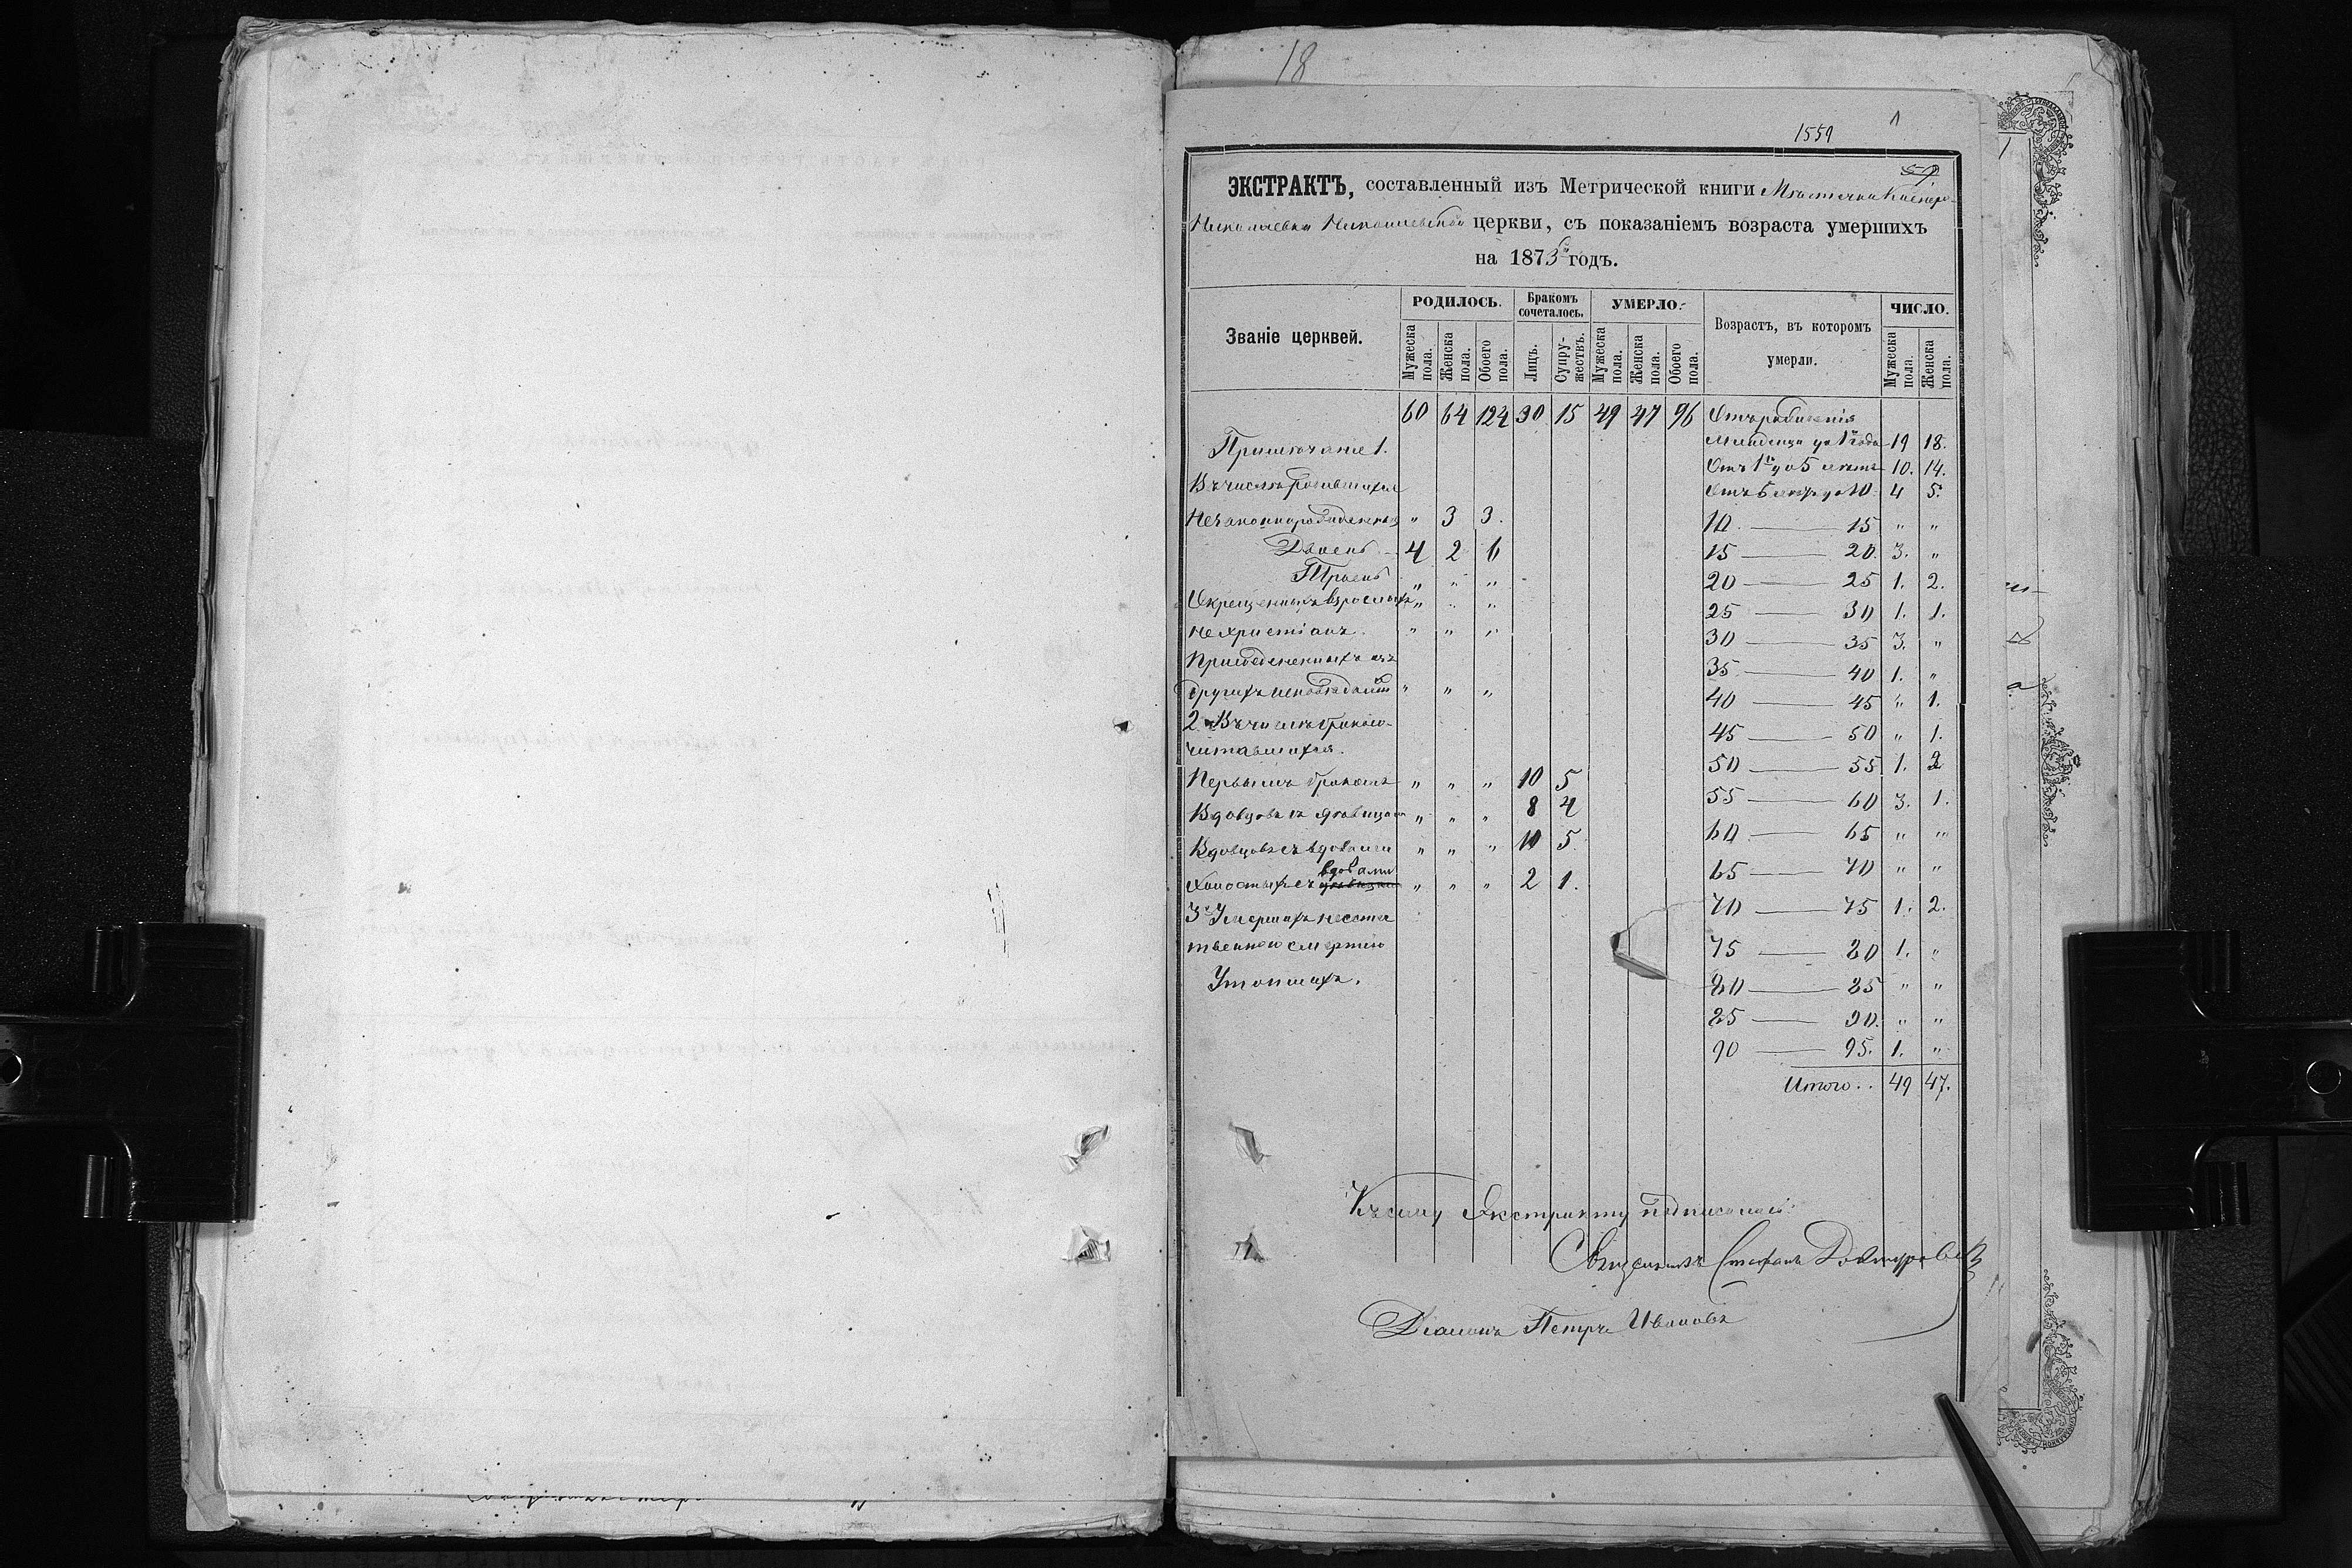 18
1559
57
ЭКСТРАКТЪ, составленный изъ Метрической книги Мѣстечка Каспаро-
Николаевки Николаевской церкви, съ показаніемъ возраста умершихъ
на 1873й годъ.
Званіе церквей. РОДИЛОСЬ. Бракомъ сочеталось. УМЕРЛО. Возрастъ, въ которомъ умерли. ЧИСЛО.
Мужеска пола. Женска пола. Обоего пола. Лицъ. Супружествъ. Мужеска пола. Женска пола. Обоего пола. Мужеска пола. Женска пола.
60 64 124 30 15 49 47 96 Отъ рожденія
младенца до 1го года 19 18.
Примѣчаніе 1.
Отъ 1го до 5 лѣтъ 10. 14.
Въ числѣ родившихся
Отъ 5 лѣтъ до 10. 4 5.
Незаконнорожденныхъ " 3 3.
10. — 15 " "
Двоенъ 4 2 6
15 — 20. 3. "
Троенъ " " "
20 — 25 1. 2.
Окрещенныхъ взрослыхъ " " "
25 — 30 1. 1.
не христіанъ. " " "
30 — 35 3. "
Присоединенныхъ изъ
35 — 40 1. "
другихъ исповѣданій " " "
40 — 45 " 1.
2е Въ числѣ бракосо-
45 — 50 " 1.
читавшихся.
50 — 55 1. 2
Первымъ бракомъ " " " 10 5
55 — 60 3. 1.
Вдовцовъ съ дѣвицами " " " 8 4
60 — 65 " "
Вдовцовъ съ вдовами " " " 10 5.
65 — 70 " "
Холостыхъ съ вдовами " " " 2 1.
3е Умершихъ неесте
70 — 75 1. 2.
твенною смертію
75 — 80 1. "
Утопшихъ.
80 — 85 " "
85 — 90. " "
90 — 95. 1. "
Итого.. 49 47.
Къ сему Экстракту подписались:
Священникъ Стефанъ
Діаконъ Петръ Ивановъ